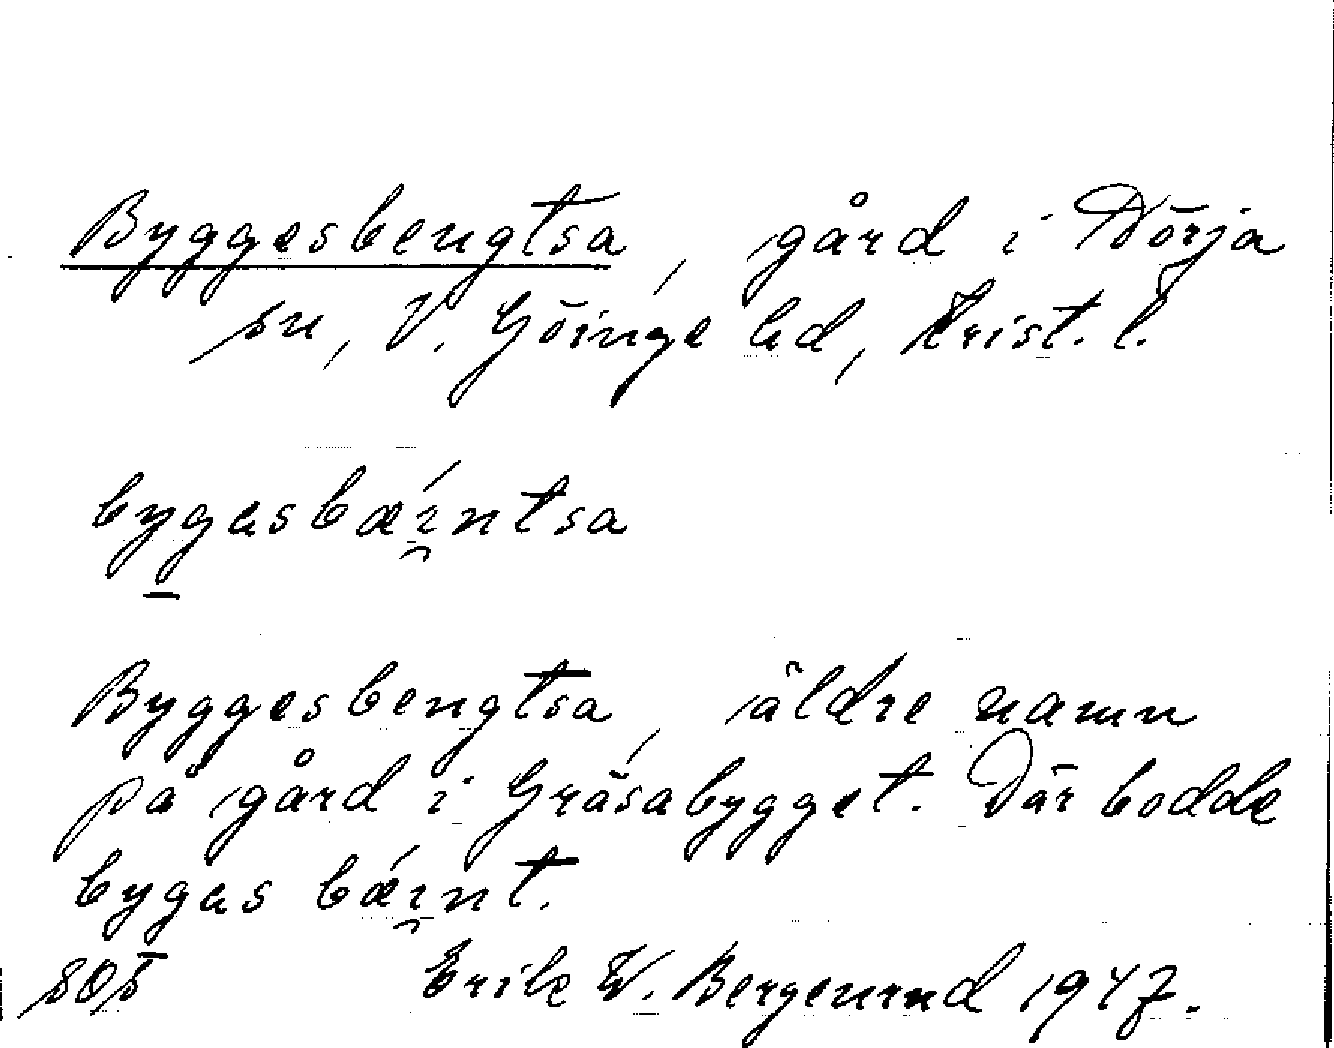 Byggesbengtsa, gård i Dörja
sn, V. Göinge hd, Krist. l.
bygasbǽi̯ntsa
Byggesbengtsa, äldre namn
på gård i Gräsabygget. Där bodde
bygas bǽi̯nt.
Erik W. Bergenrud 1947.